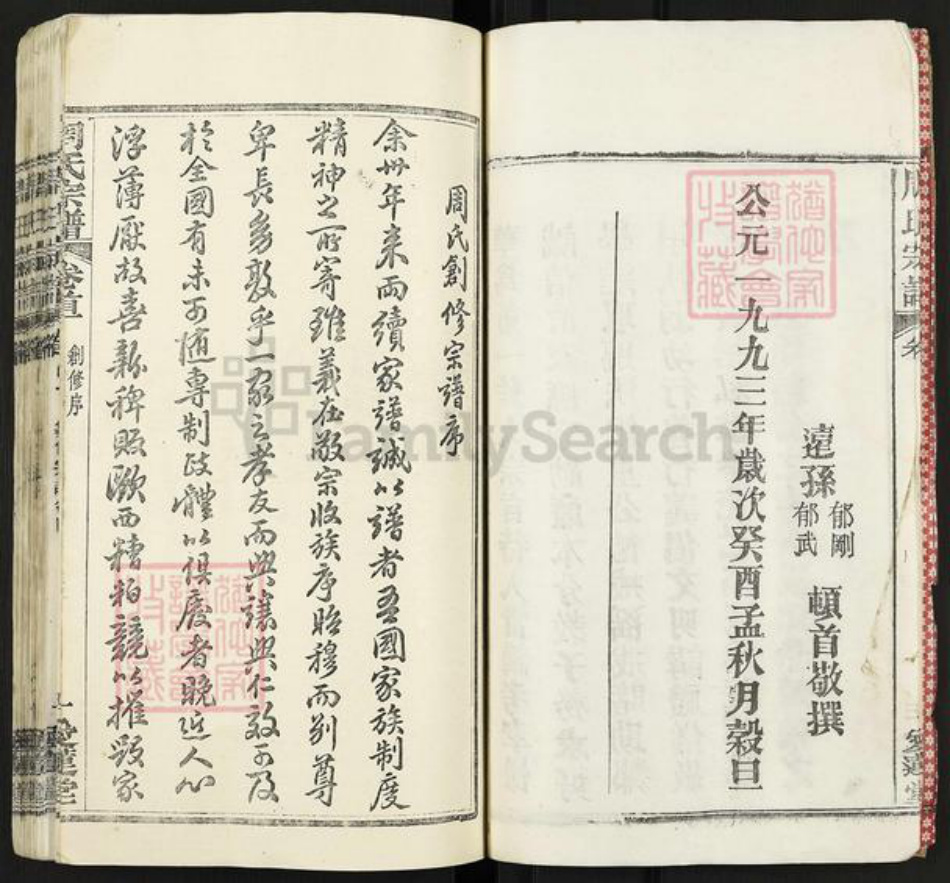 周氏宗譜
遠孫
郁剛
郁武
頓首敬撰
公元一九九三年歲次癸酉孟秋月穀旦
周氏創修宗譜序
余卅年來而續家譜誠以譜者吾國家族制度
精神之所寄雖義在敬宗收族序昭穆而別尊
卑長務敦乎一家之孝友而興讓興仁效可及
於全國有未可隨專制政體以俱廢者晚近人心
浮薄厭故喜新稗販歐西糟粕競以摧毀家
周氏宗譜
卷首
創修序
愛蓮堂
FamilySearch